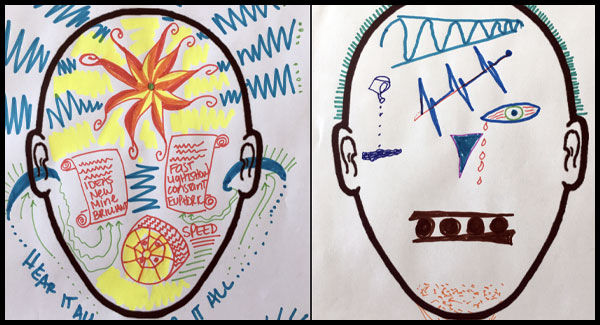 IDEAS
NEW
MINE
BRILLIANT
FAST
LIGHTENING
CONSTANT
EUPHORIC
SPEED
HEAR IT ALL
IT ALL